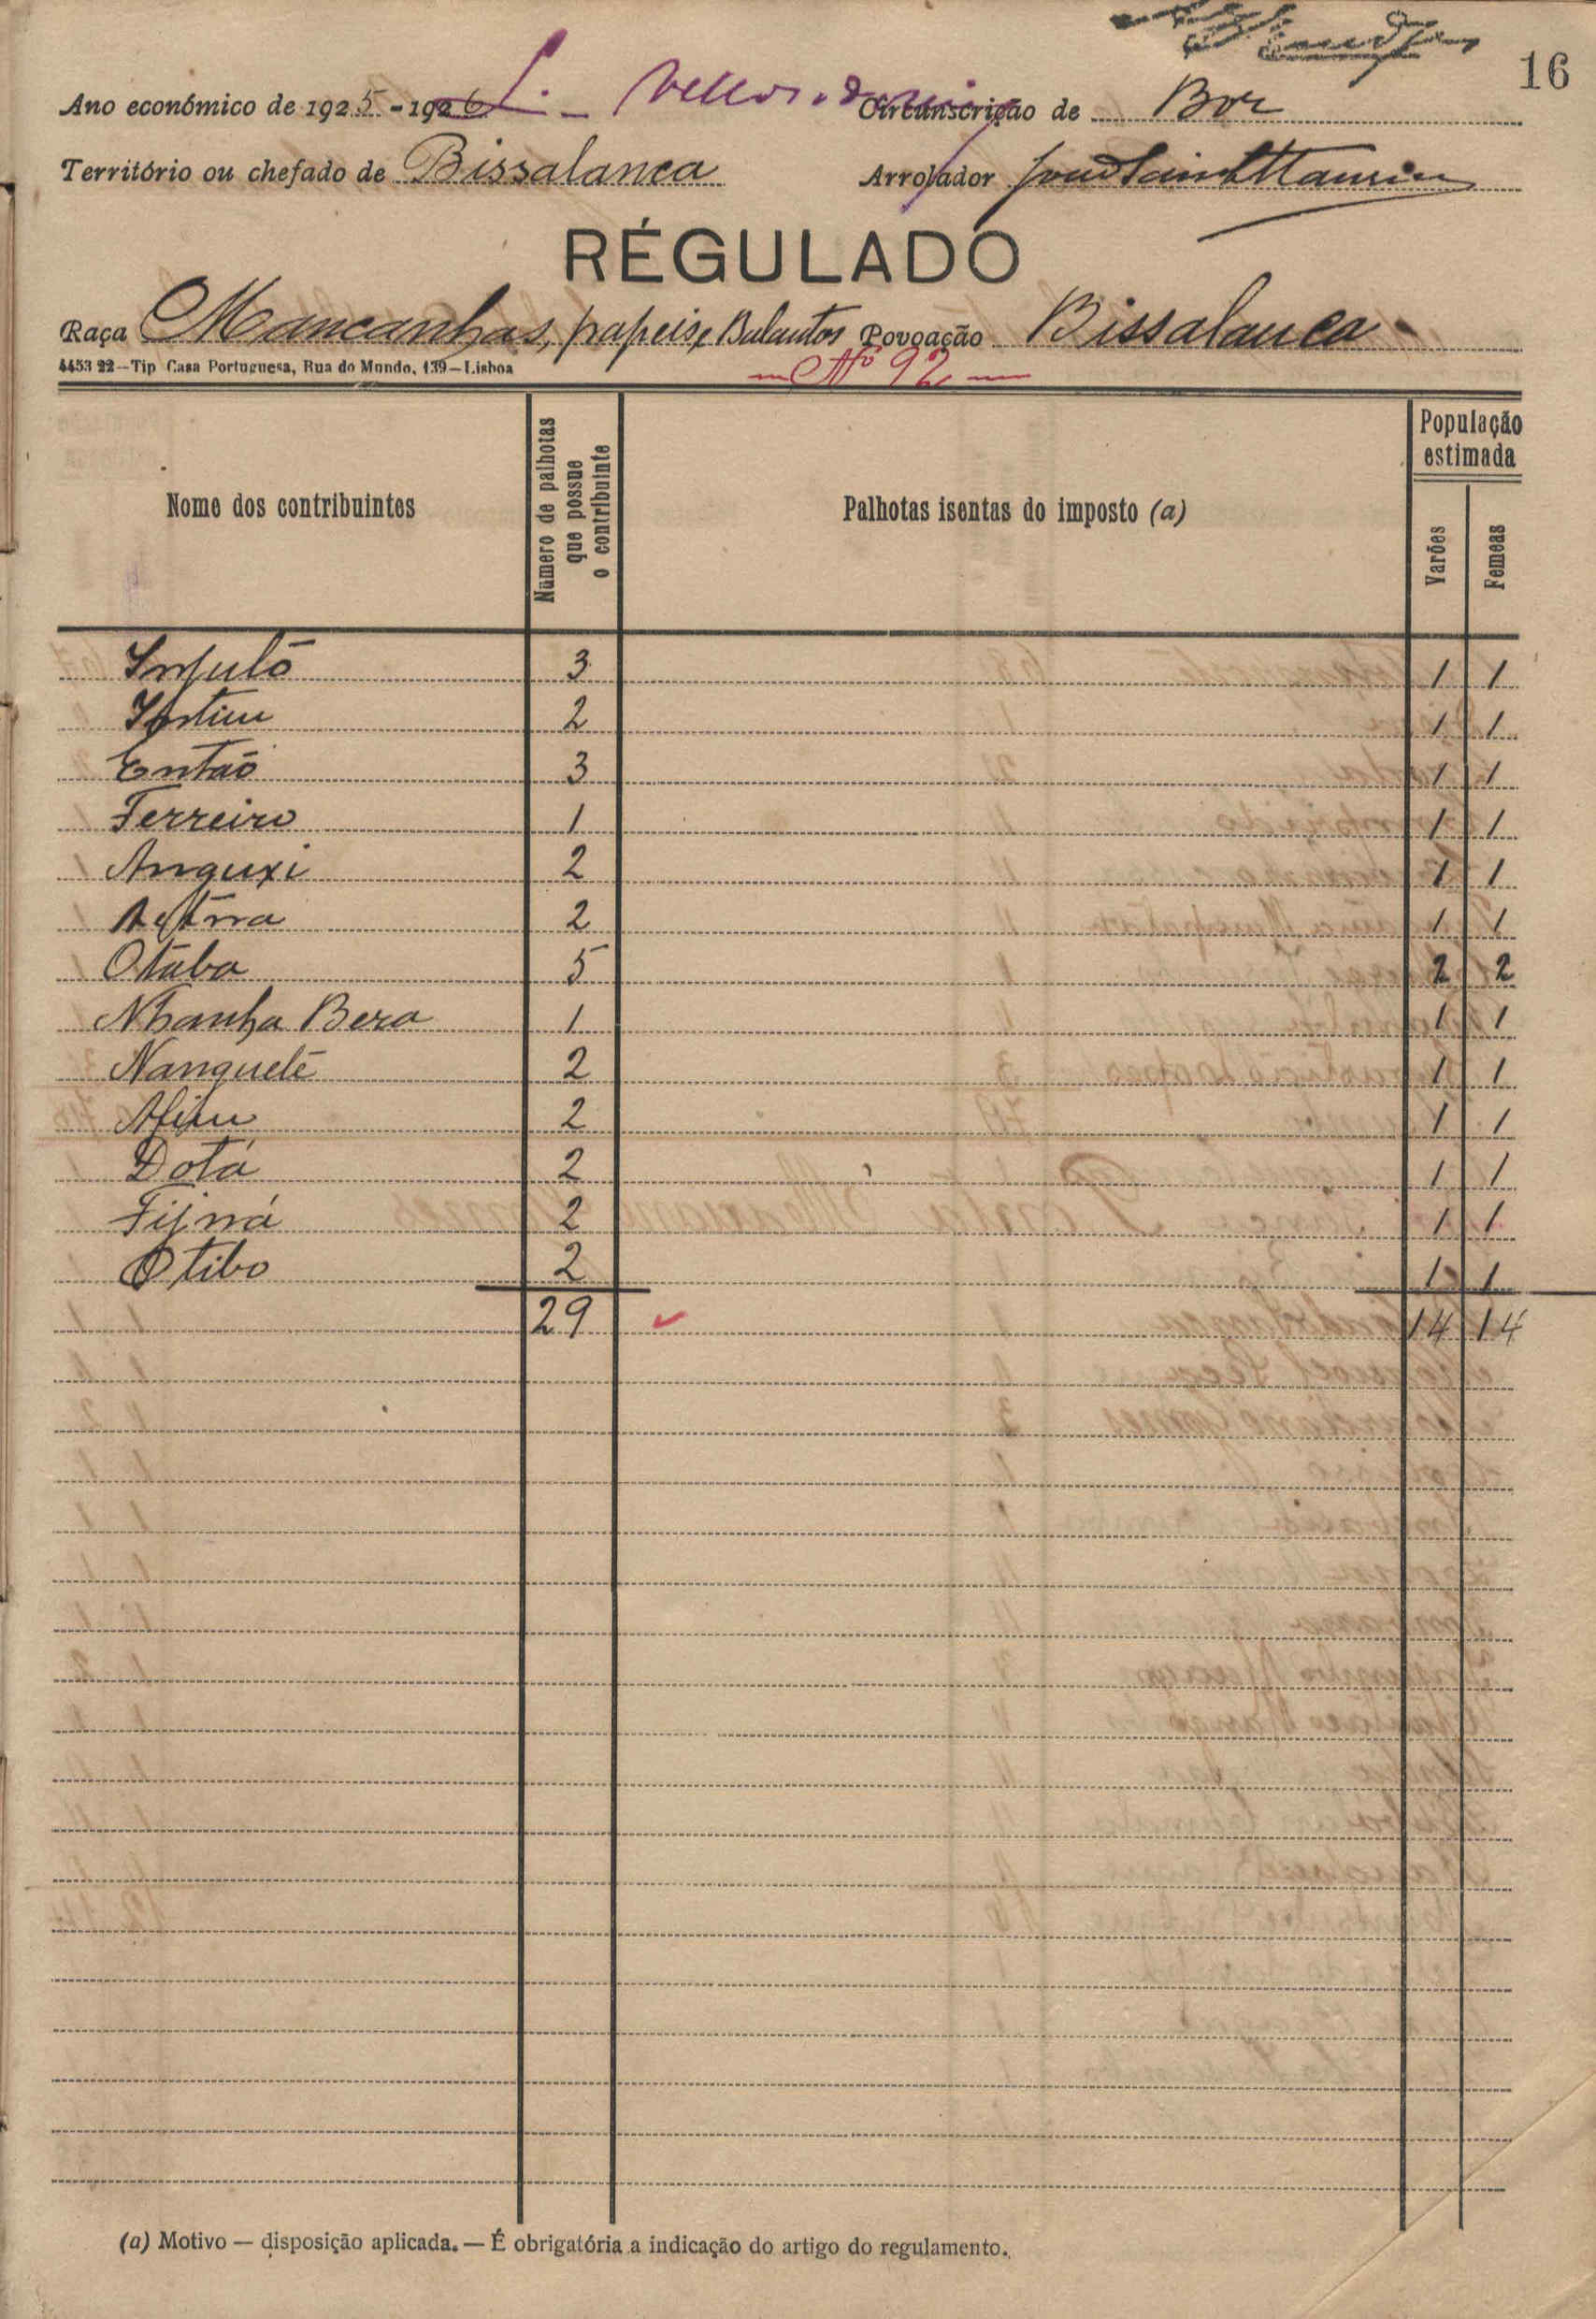 16
Ano económico de 1925-1926 Circunscrição de Bor
Território ou chefado de Bissalanca Arrolador
RÉGULADO
Raça Mancanhas, papeis, Balantos Povoação Bissalanca
4453 22—Tip Casa Portuguesa, Rua do Mundo, 139—Lisboa
Nº 92
Nome dos contribuintes Número de palhotas que possue o contribuinte Palhotas isentas do imposto (a) População estimada
Varões Femeas
3 1 1
2 1 1
Então 3 1 1
Ferreiro 1 1 1
Anguxi 2 1 1
2 1 1
Otuba 5 2 2
Nhanha Bera 1 1 1
Nanguelé 2 1 1
2 1 1
Dotá 2 1 1
Fijná 2 1 1
Otibo 2 1 1
29 14 14
(a) Motivo — disposição aplicada. — É obrigatória a indicação do artigo do regulamento.